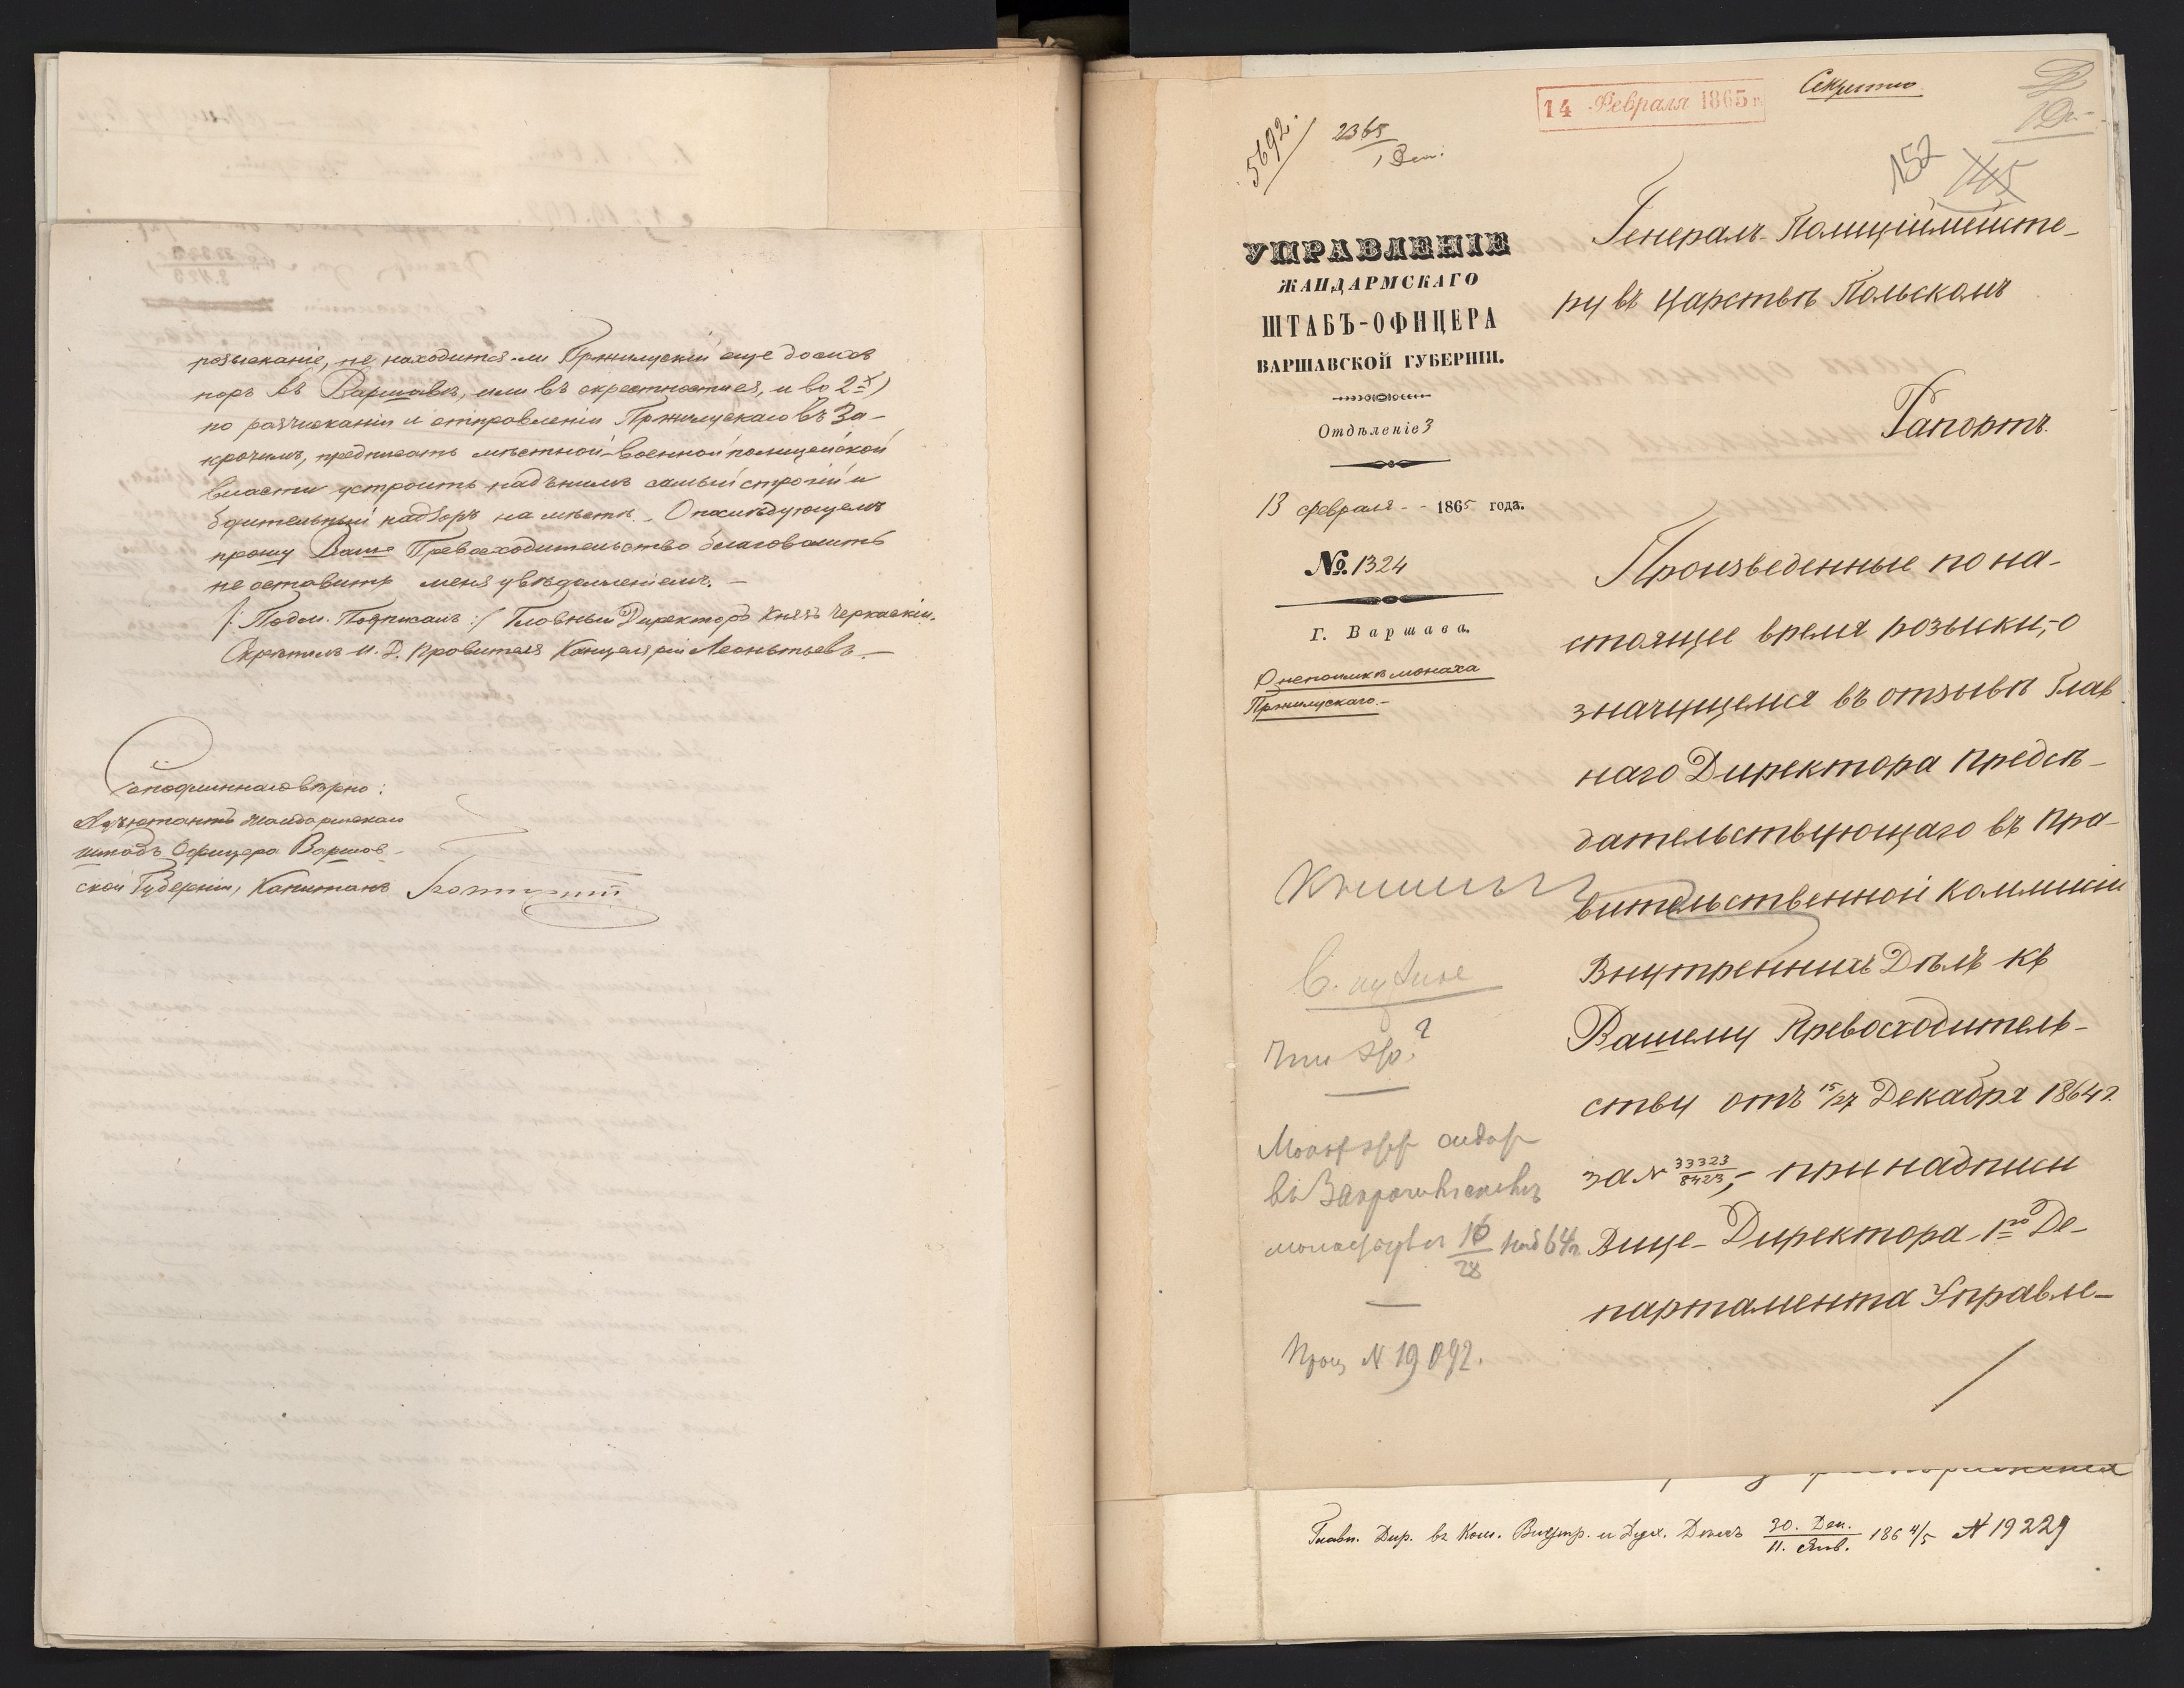 розысканіе, не находится ли Пржилускій еще до сихъ
поръ въ Варшавѣ, или въ окрестностяхъ, и во 2х)
по розысканіи и отправленіи Пржилускаго въ За-
крочимъ, предписать мѣстной военной полицейской
власти устроить надъ нимъ самый строгій и
бдительный надзоръ на мѣстѣ. О послѣдующемъ
прошу Ваше Превосходительство благоволить
не оставить меня увѣдомленіемъ. —
/: Подл. Подписалъ :/ Главный Директоръ Князь Черкаскій.
Скрѣпилъ И. Д. Правителя Канцеляріи Леонтьевъ. —
Съ подлиннымъ вѣрно:
Адъютантъ Жандармскаго
штабъ Офицера Варшав-
ской Губерніи, Капитанъ
14 Февраля 1865 г.
Секретно.
5692.
2365
1 Деп:
152
145
Генералъ-Полиціймейсте-
ру въ Царствѣ Польскомъ
УПРАВЛЕНІЕ
ЖАНДАРМСКАГО
ШТАБЪ-ОФИЦЕРА
ВАРШАВСКОЙ ГУБЕРНІИ.
Отдѣленіе 3
13 февраля - - 1865 года.
№. 1324
Г. Варшава.
О непоимкѣ монаха
Пржилускаго. —
Рапортъ.
Произведенные по на-
стоящее время розыски, о
значущемся въ отзывѣ Глав
наго Директора Предсѣ-
дательствующаго въ Пра-
вительственной Коммисіи
Внутреннихъ Дѣлъ къ
Вашему Превосходитель-
ству отъ 15/27 Декабря 1864 г.
за № 33323/8423, - при надписи
Вице-Директора 1го Де-
партамента Управле-
въ Закрочимскомъ
16/28 64 г.
№ 19092.
Главн. Дир. въ Ком. Внутр. и Дух. Дѣлъ 30. Дек./11. Янв. 1864/5 № 19229